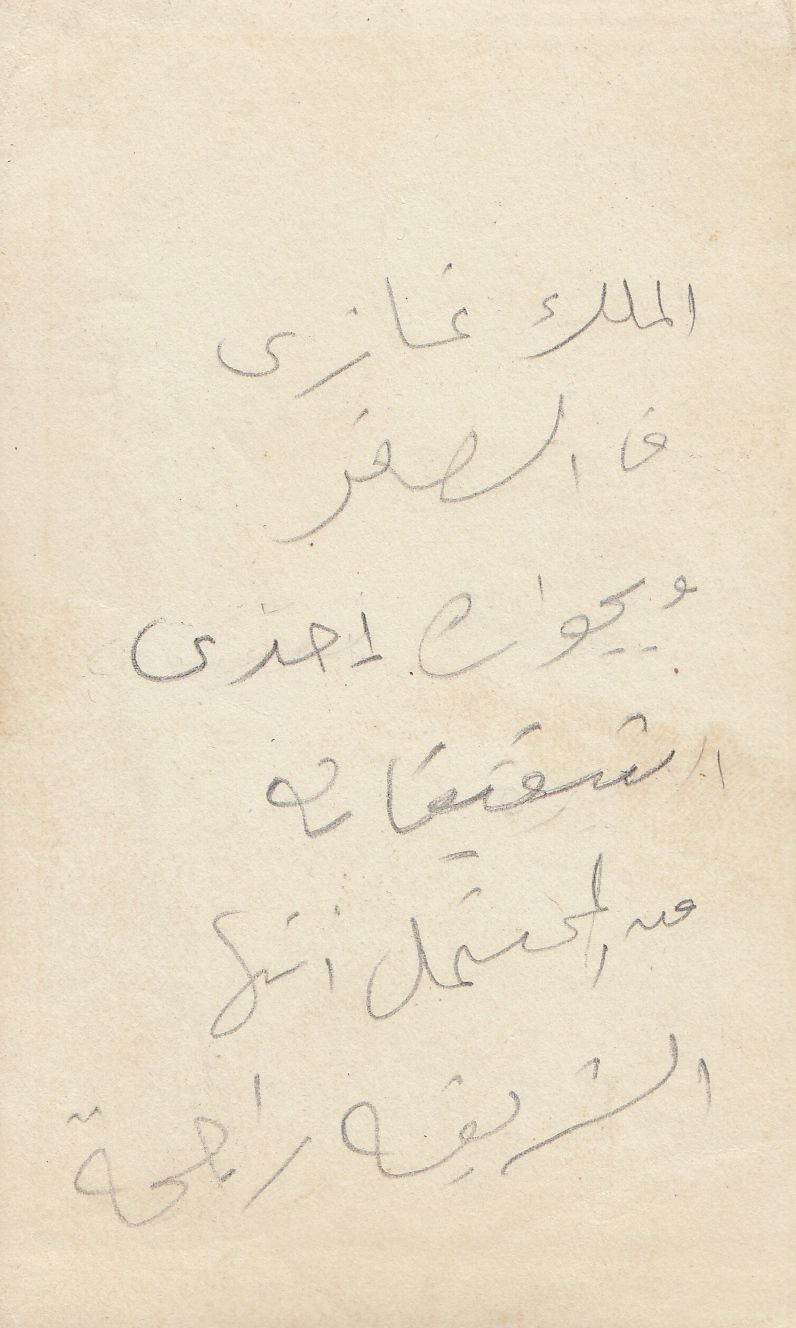 الملك غازى
في الصغر
وبجواره احدى
الشقيقات
من المحتمل انها
الشريفه راجحة